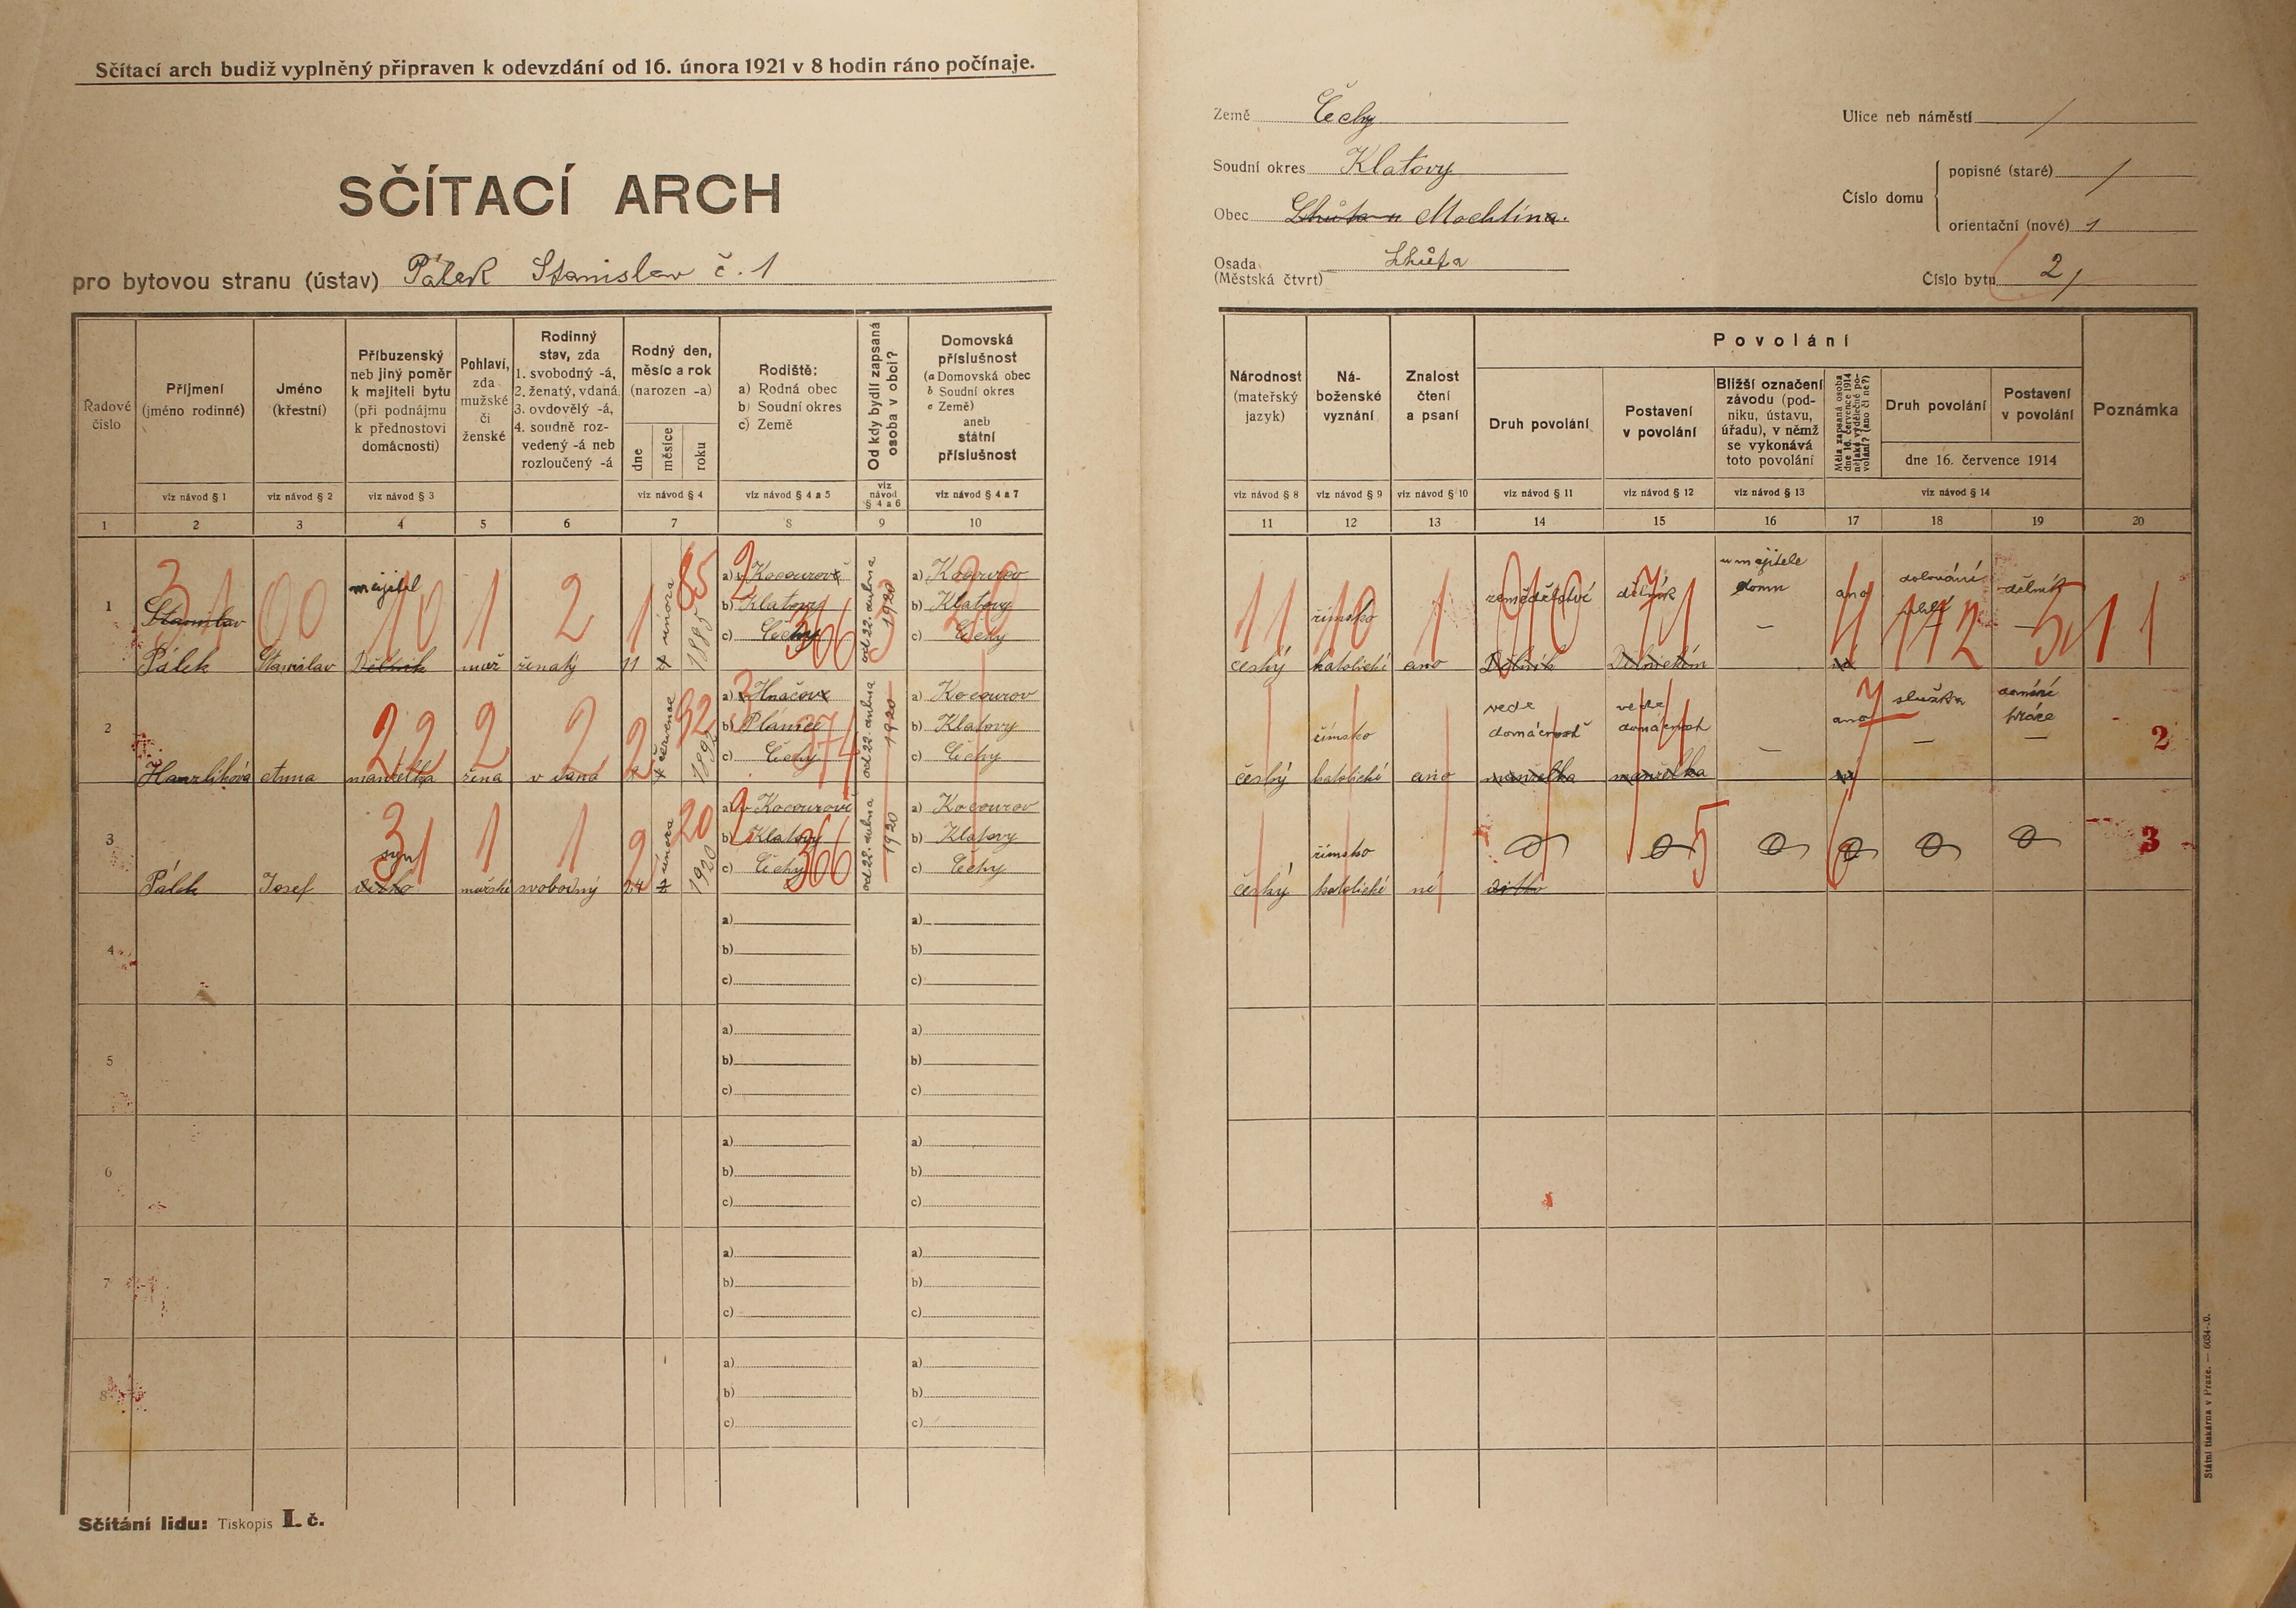 Sčítací arch budiž vyplněný připraven k odevzdání od 16. února 1921 v 8 hodin ráno počínaje.
SČÍTACÍ ARCH
pro bytovou stranu (ústav) Pálek Stanislav č. 1
Země Čechy
Soudní okres Klatovy
Obec Lhůta u Mochtína.
Osada Lhůta
(Městská čtvrt)
Ulice neb náměstí /
Číslo domu
popisné (staré) /
orientační (nové) 1
Číslo bytu 2/
Řadové číslo
Příjmení (jméno rodinné)
Jméno (křestní)
Příbuzenský neb jiný poměr k majiteli bytu (při podnájmu k přednostovi domácnosti)
Pohlaví, zda mužské či ženské
Rodinný stav, zda 1. svobodný -á, 2. ženatý, vdaná 3. ovdovělý -á, 4. soudně rozvedený -á neb rozloučený -á
Rodný den, měsíc a rok (narozen -a)
dne měsíce roku
Rodiště: a) Rodná obec b) Soudní okres c) Země
Od kdy bydlí zapsaná osoba v obci?
Domovská příslušnost (a Domovská obec b Soudní okres c Země) aneb státní příslušnost
viz návod § 1 viz návod § 2 viz návod § 3 viz návod § 4 viz návod § 4 a 5 viz návod § 4 a 6 viz návod § 4 a 7
1 2 3 4 5 6 7 8 9 10
Národnost (mateřský jazyk)
Náboženské vyznání
Znalost čtení a psaní
Povolání
Druh povolání
Postavení v povolání
Bližší označení závodu (podniku, ústavu, úřadu), v němž se vykonává toto povolání
Měla zapsaná osoba dne 16. července 1914 nějaké výdělečné povolání? (ano či ne?)
Druh povolání
Postavení v povolání
dne 16. července 1914
Poznámka
viz návod § 8 viz návod § 9 viz návod § 10 viz návod § 11 viz návod § 12 viz návod § 13 viz návod § 14
11 12 13 14 15 16 17 18 19 20
1
Stanislav
Pálek Stanislav
majitel
Dělník
muž ženatý 11 2 února 1885
85
a) v Kocourově
b) Klatovy
c) Čechy
366
od 22. dubna 1920
a) Kocourov
b) Klatovy
c) Čechy
český
římsko katolické
ano
zemědělství
Dělník
dělník
u majitele domu
—
ano
ne
dolování
dělník
—
2
Hanzlíková Anna manželka žena vdaná 2 července 1892
92
a) v Hnačově
b) Plánice
c) Čechy
374
od 22. dubna 1920
a) Kocourov
b) Klatovy
c) Čechy
český
římsko katolické
ano
vede domácnost
manželka
vede domácnost
manželka
—
ano
ne
služka
—
domácí práce
—
2
3
Pálek Josef
syn
ditto
mužské svobodný 24 2 února 1920
20
a) v Kocourově
b) Klatovy
c) Čechy
366
od 22. dubna 1920
a) Kocourov
b) Klatovy
c) Čechy
český
římsko katolické
ne
ditto
3
4
a) a)
b) b)
c) c)
5
a) a)
b) b)
c) c)
6
a) a)
b) b)
c) c)
7
a) a)
b) b)
c) c)
8
a) a)
b) b)
c) c)
Sčítání lidu: Tiskopis I. č.
Státní tiskárna v Praze. — 6034-20.